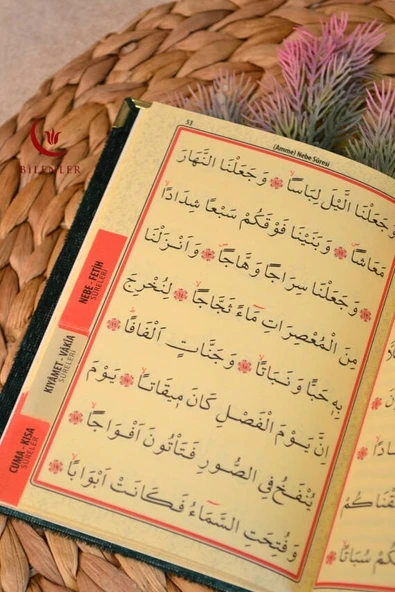 BİLENLER
53
(Amme) Nebe Sûresi
وَجَعَلْنَا الَّيْلَ لِبَاسًاۙ وَجَعَلْنَا النَّهَارَ
مَعَاشًاۖ وَبَنَيْنَا فَوْقَكُمْ سَبْعًا شِدَادًاۙ
وَجَعَلْنَا سِرَاجًا وَهَّاجًاۙ وَاَنْزَلْنَا
مِنَ الْمُعْصِرَاتِ مَٓاءً ثَجَّاجًاۙ لِنُخْرِجَ
بِه۪ حَبًّا وَنَبَاتًاۙ وَجَنَّاتٍ اَلْفَافًاۜ
اِنَّ يَوْمَ الْفَصْلِ كَانَ م۪يقَاتًاۙ يَوْمَ
يُنْفَخُ فِي الصُّورِ فَتَأْتُونَ اَفْوَاجًاۙ
وَفُتِحَتِ السَّمَٓاءُ فَكَانَتْ اَبْوَابًاۙ
NEBE - FETİH
SÛRELERİ
KIYÂMET - VÂKIA
SÛRELERİ
CUMA - KISA
SÛRELER